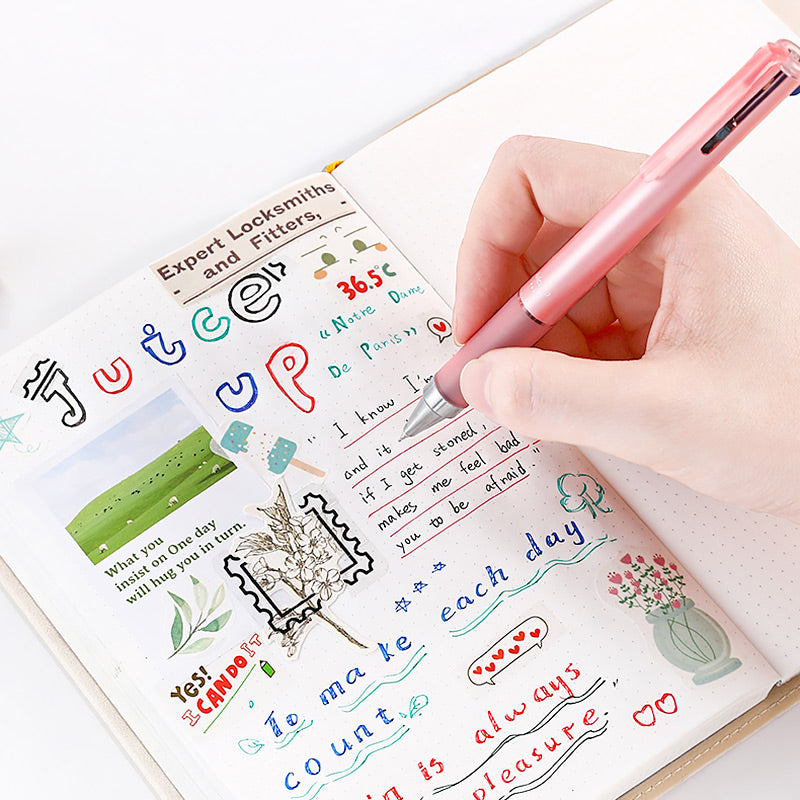 Expert Locksmiths
- and Fitters, -
juice
up
36.5°C
"Notre Dame
De Paris"
" I know I'm
and it
if I get stoned,
makes me feel bad
you to be afraid."
What you
insist on One day
will hug you in turn.
Yes!
I CAN DO IT
To make each day
count.
in is always
pleasure."